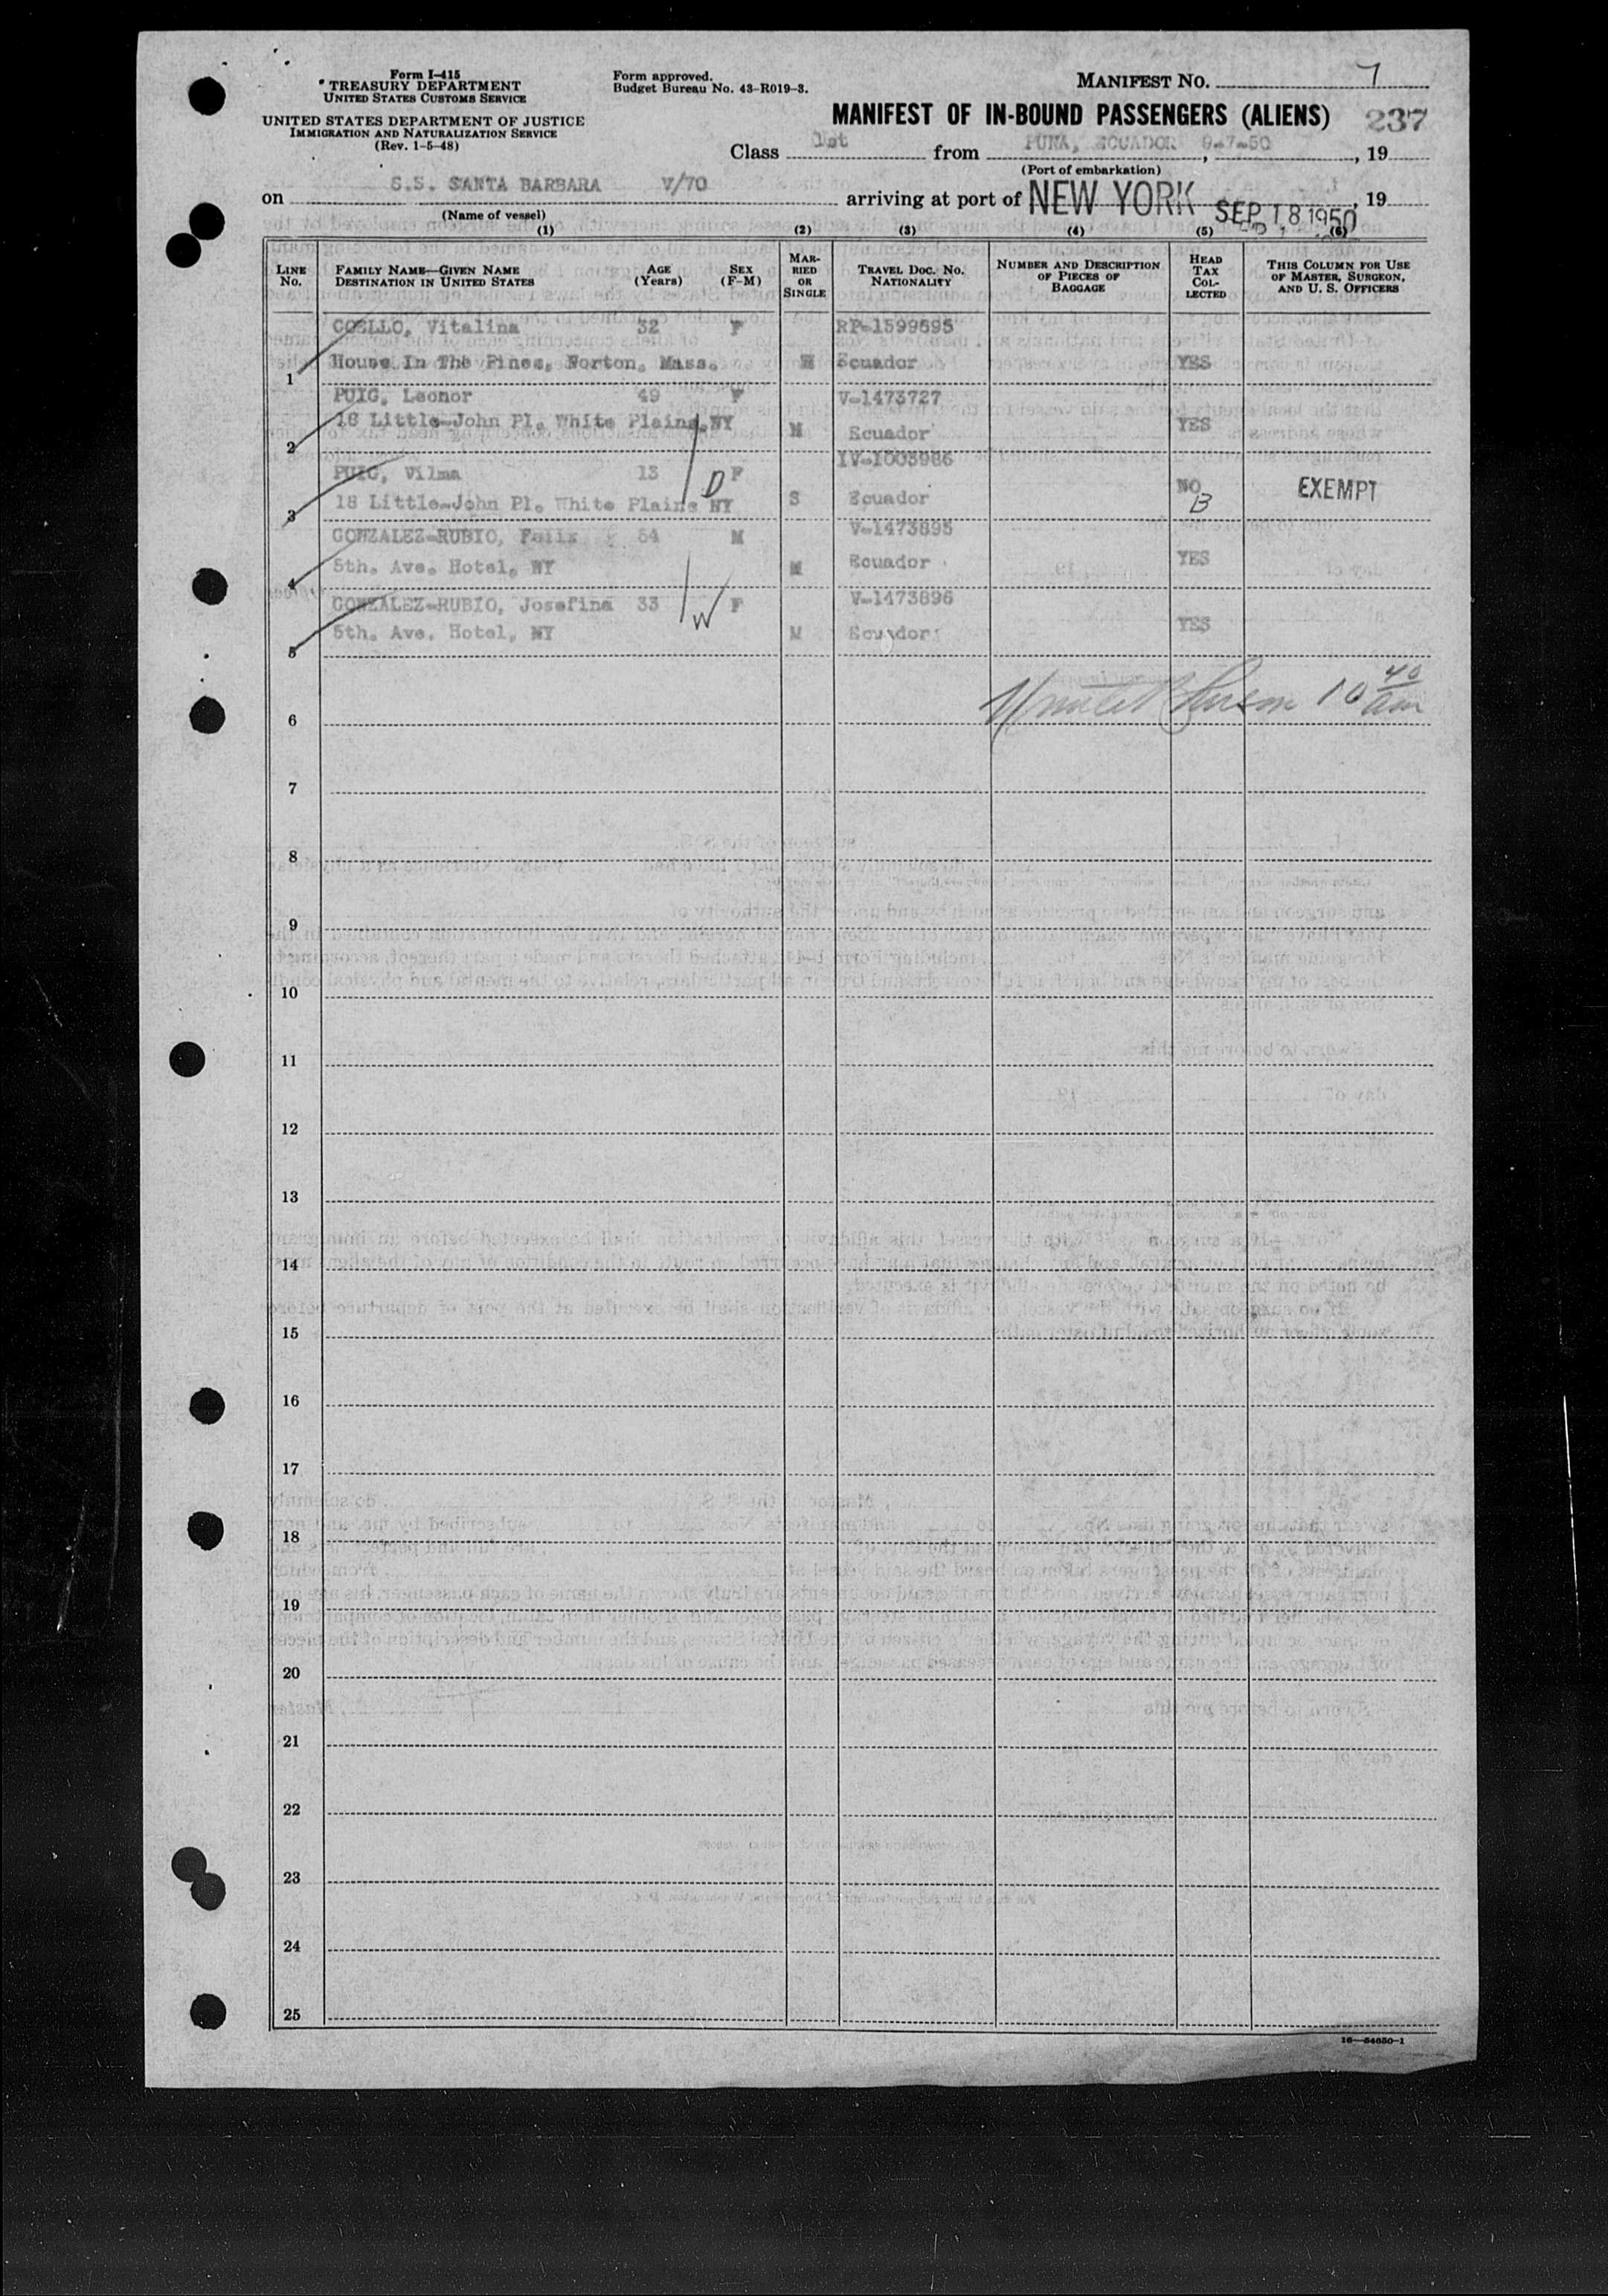 Form I-415
TREASURY DEPARTMENT
UNITED STATES CUSTOMS SERVICE
UNITED STATES DEPARTMENT OF JUSTICE
IMMIGRATION AND NATURALIZATION SERVICE
(Rev. 1-5-48)
Form approved.
Budget Bureau No. 43-R019-3.
MANIFEST NO. 7
MANIFEST OF IN-BOUND PASSENGERS (ALIENS) 237
Class 1st from PUNA, ECUADOR 9-7-50, 19
(Port of embarkation)
on S.S. SANTA BARBARA V/70 arriving at port of NEW YORK SEP 18 1950, 19
(Name of vessel)
(1) (2) (3) (4) (5) (6)
LINE NO. FAMILY NAME—GIVEN NAME DESTINATION IN UNITED STATES AGE (Years) SEX (F-M) MARRIED OR SINGLE TRAVEL DOC. NO. NATIONALITY NUMBER AND DESCRIPTION OF PIECES OF BAGGAGE HEAD TAX COLLECTED THIS COLUMN FOR USE OF MASTER, SURGEON, AND U. S. OFFICERS
COELLO, Vitalina 32 F RP-1599595
1 House In The Pines, Norton, Mass. Ecuador YES
PUIG, Leonor 49 F V-1473727
2 18 Little-John Pl. White Plains, NY M Ecuador YES
PUIG, Vilma 13 D F IV-1003986
3 18 Little-John Pl. White Plains NY S Ecuador NO B EXEMPT
GONZALEZ-RUBIO, Felix 54 M V-1473895
4 5th. Ave. Hotel, NY M Ecuador YES
GONZALEZ-RUBIO, Josefina 33 W F V-1473896
5 5th. Ave. Hotel, NY M Ecuador YES
10 40 am
6
7
8
9
10
11
12
13
14
15
16
17
18
19
20
21
22
23
24
25
16—54650-1